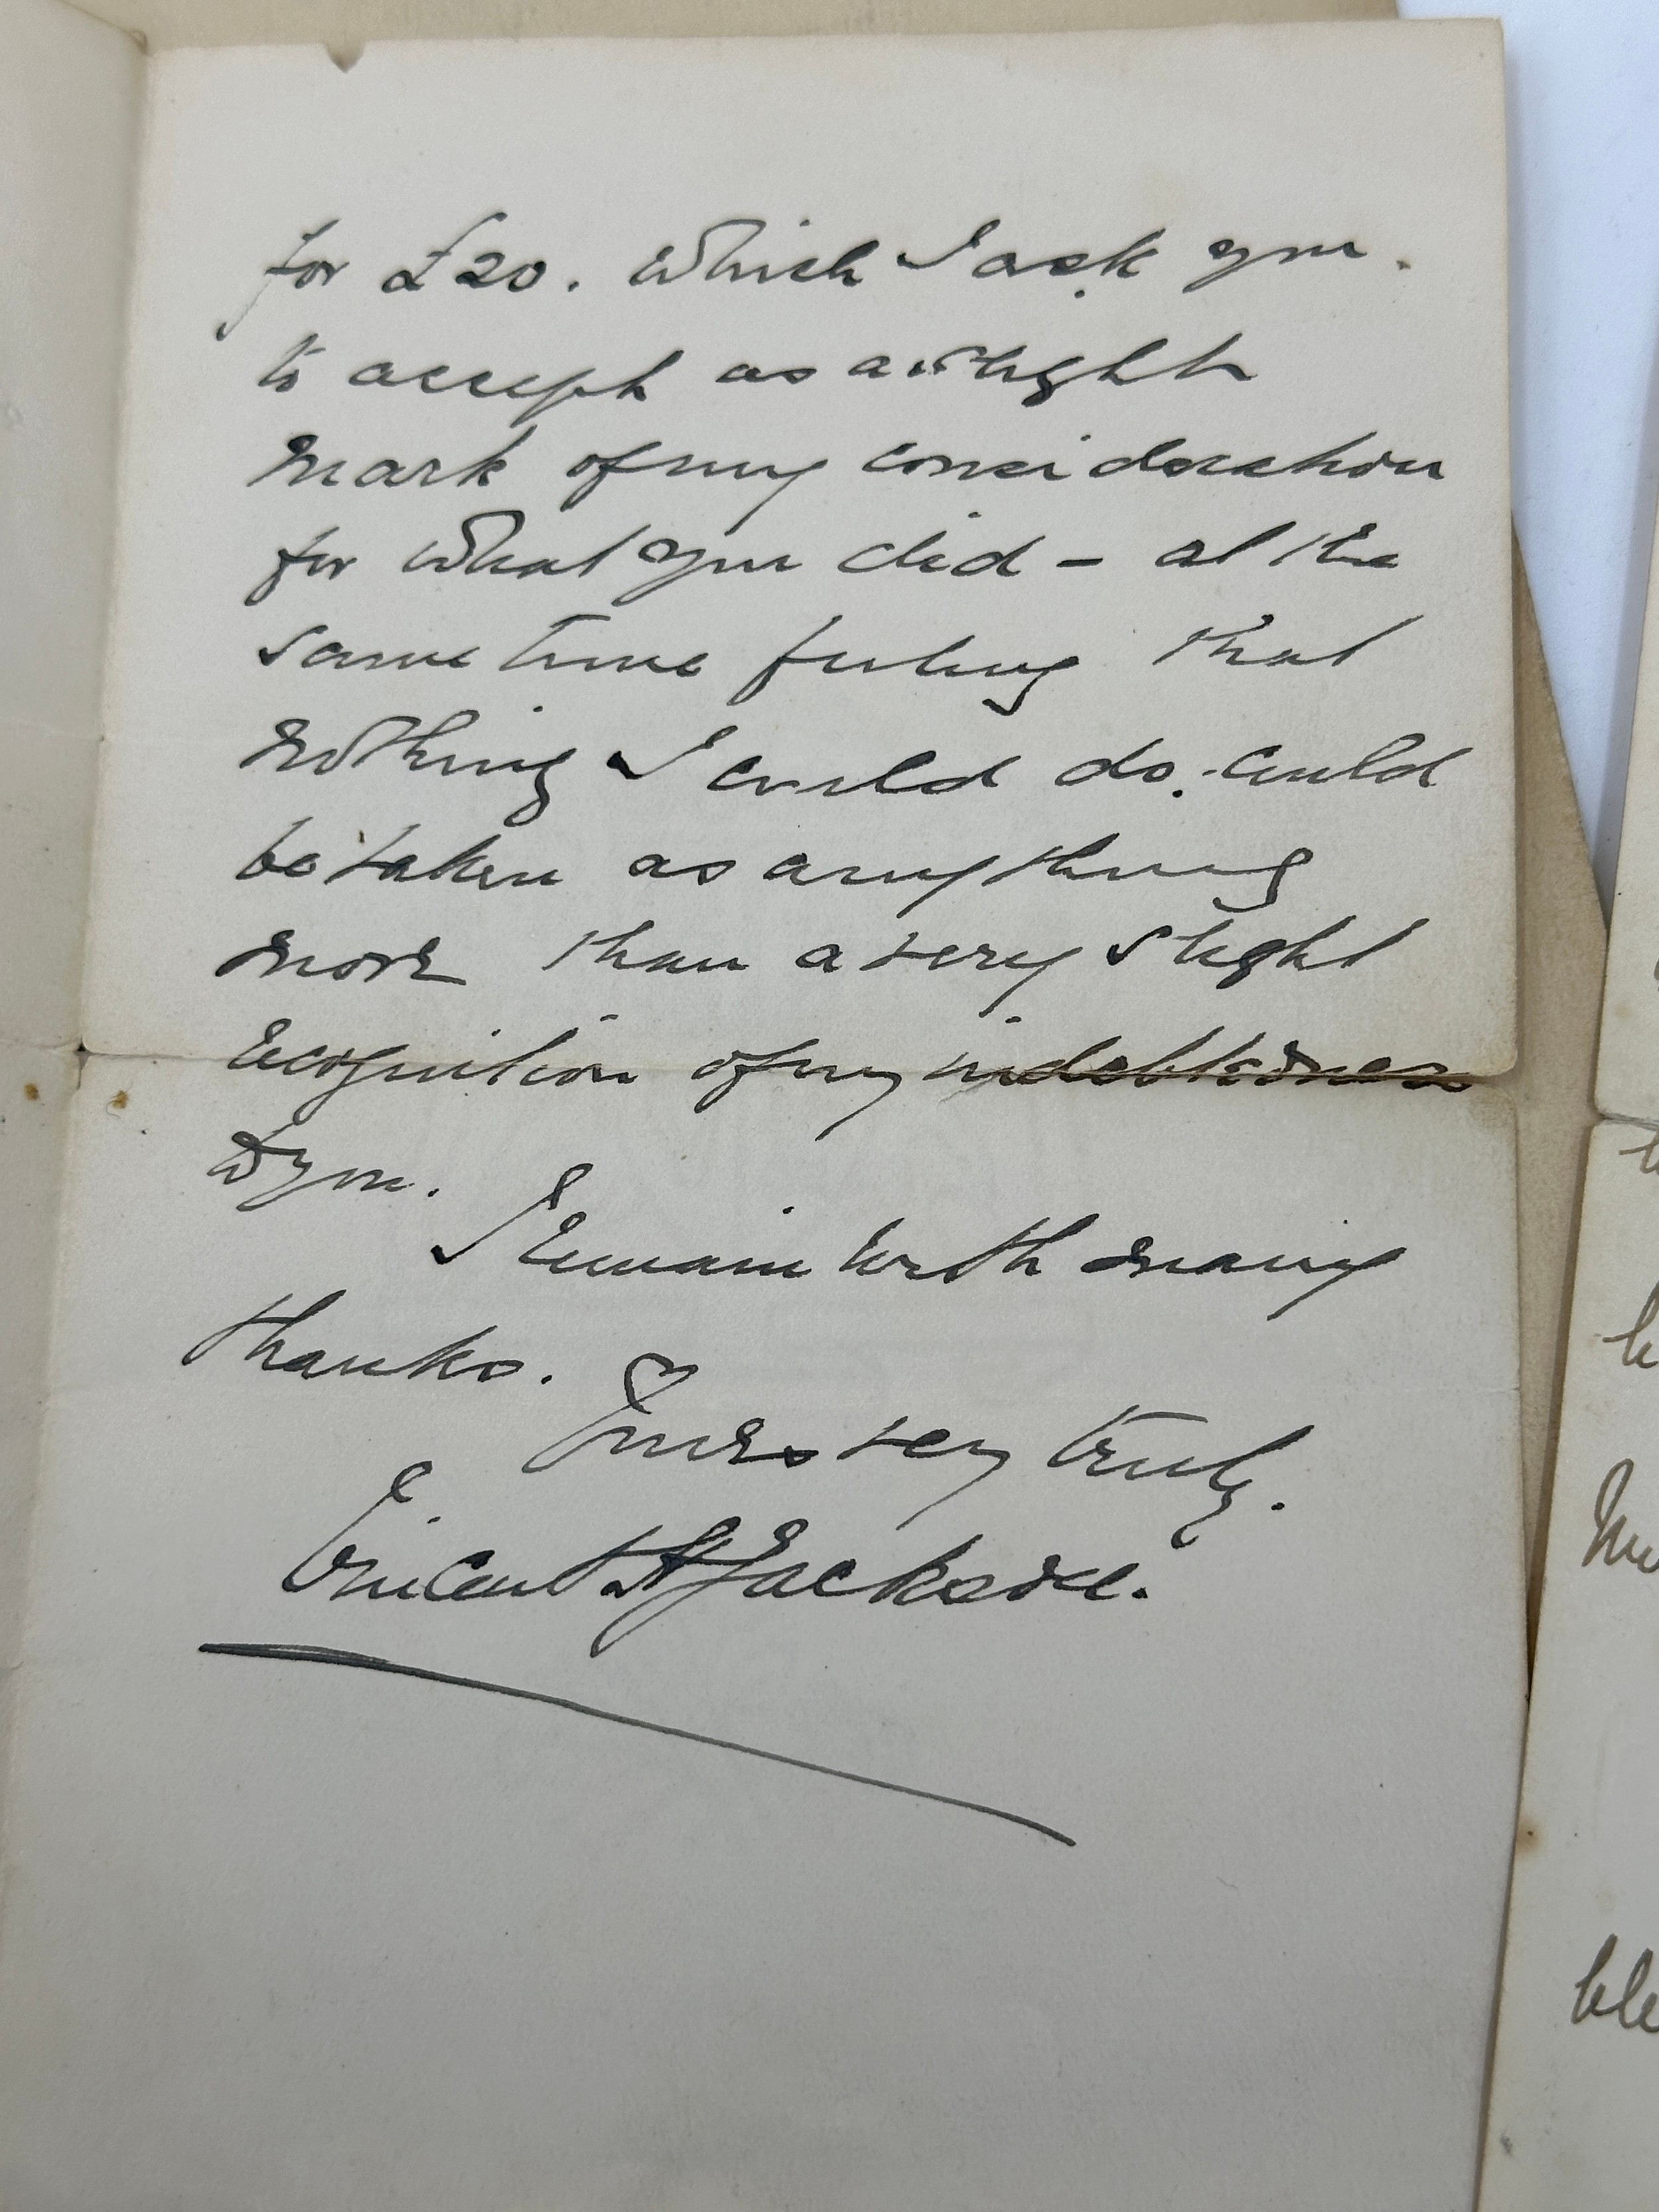 for £20. Which I ask you.
to accept as a slight
mark of my consideration
for what you did - at the
same time feeling that
nothing I could do. could
be taken as anything
more than a very slight
recognition of my indebtedness
to you.
I remain with many
thanks.
Yours very truly.
Vincent H Jackson.